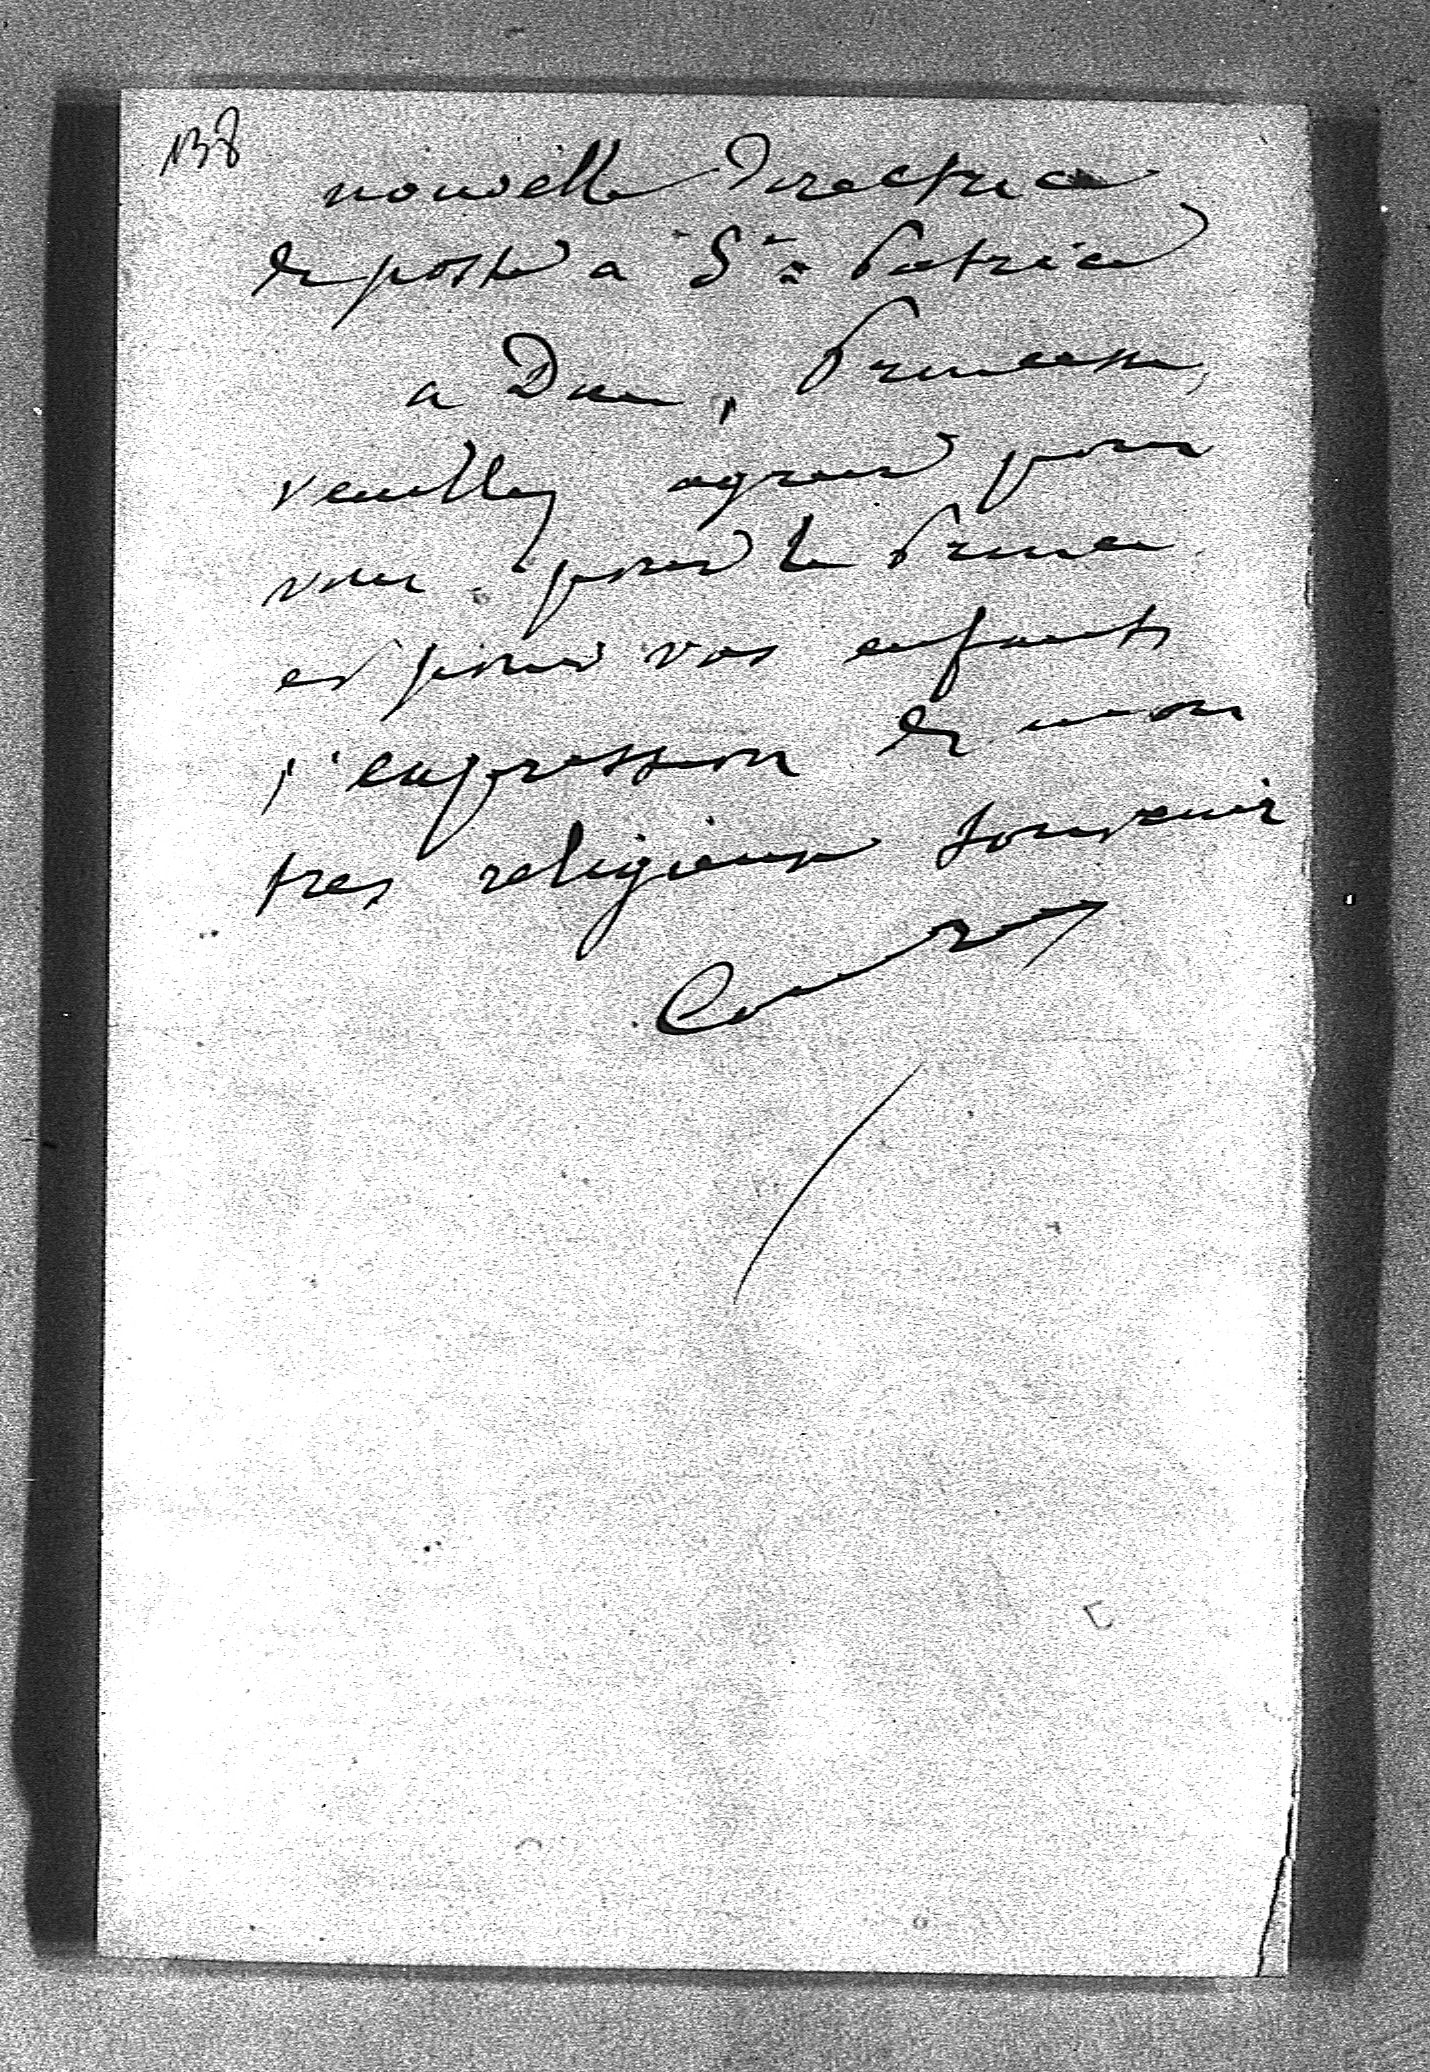 138
nouvelle Directrice
de poste a St Patrice
a Dieu, Princesse,
veuillez agreer pour
vous pour le Prince
et pour vos enfants
l'expression de mon
tres religieux souvenir